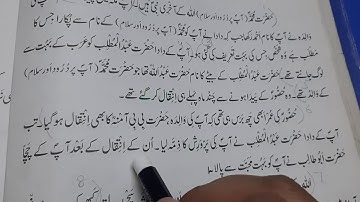 حضرت محمدؐ (آپ پر درود اور سلام) اللہ کے آخری نبی ہیں۔
والدہ نے آپ کا نام احمد رکھا جب کہ دادا نے آپ کو محمدؐ (آپ پر درود اور سلام) کے نام سے پکارا جس کا
مطلب ہے وہ شخص، جس کی بہت تعریف کی گئی ہو۔ آپ کے دادا حضرت عبدالمطلب کو عرب کے بہت سے
لوگ جانتے تھے۔ حضرت عبدالمطلب کے بیٹے کا نام حضرت عبداللہ تھا جو حضرت محمدؐ (آپ پر درود اور سلام)
کے والد تھے۔ حضورؐ کے پیدا ہونے سے چند ماہ پہلے ہی انتقال کر گئے تھے۔
حضورؐ کی عمر ابھی چھ برس ہی تھی کہ آپ کی والدہ حضرت بی بی آمنہ کا بھی انتقال ہو گیا۔ تب
آپ کے دادا حضرت عبدالمطلب نے آپ کی پرورش کا ذمہ لیا۔ اُن کے انتقال کے بعد آپ کے چچا
حضرت ابوطالب نے آپ کو بہت محبت سے پالا۔
8
اللہ